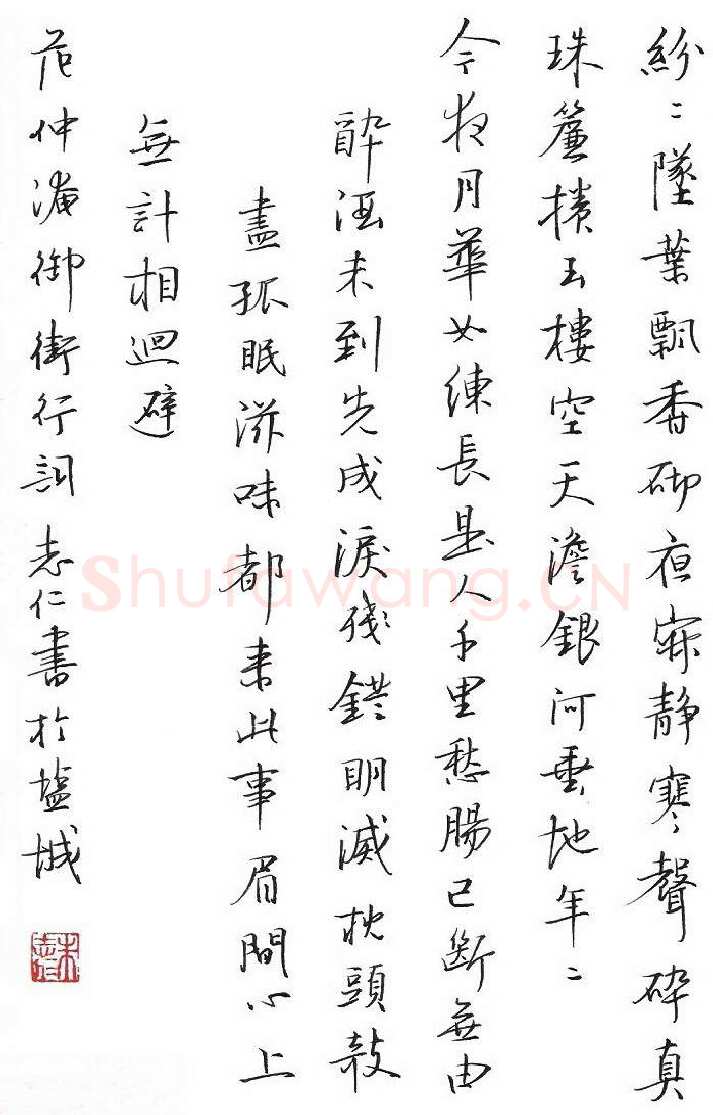 紛〻墜葉飄香砌夜寂靜寒聲碎真
珠簾捲玉樓空天澹銀河垂地年〻
今夜月華如練長是人千里愁腸已斷無由
醉酒未到先成淚殘鐙明滅枕頭敧
盡孤眠滋味都来此事眉間心上
無計相迴避
范仲淹御街行詞志仁書於塩城
Shufawang.CN